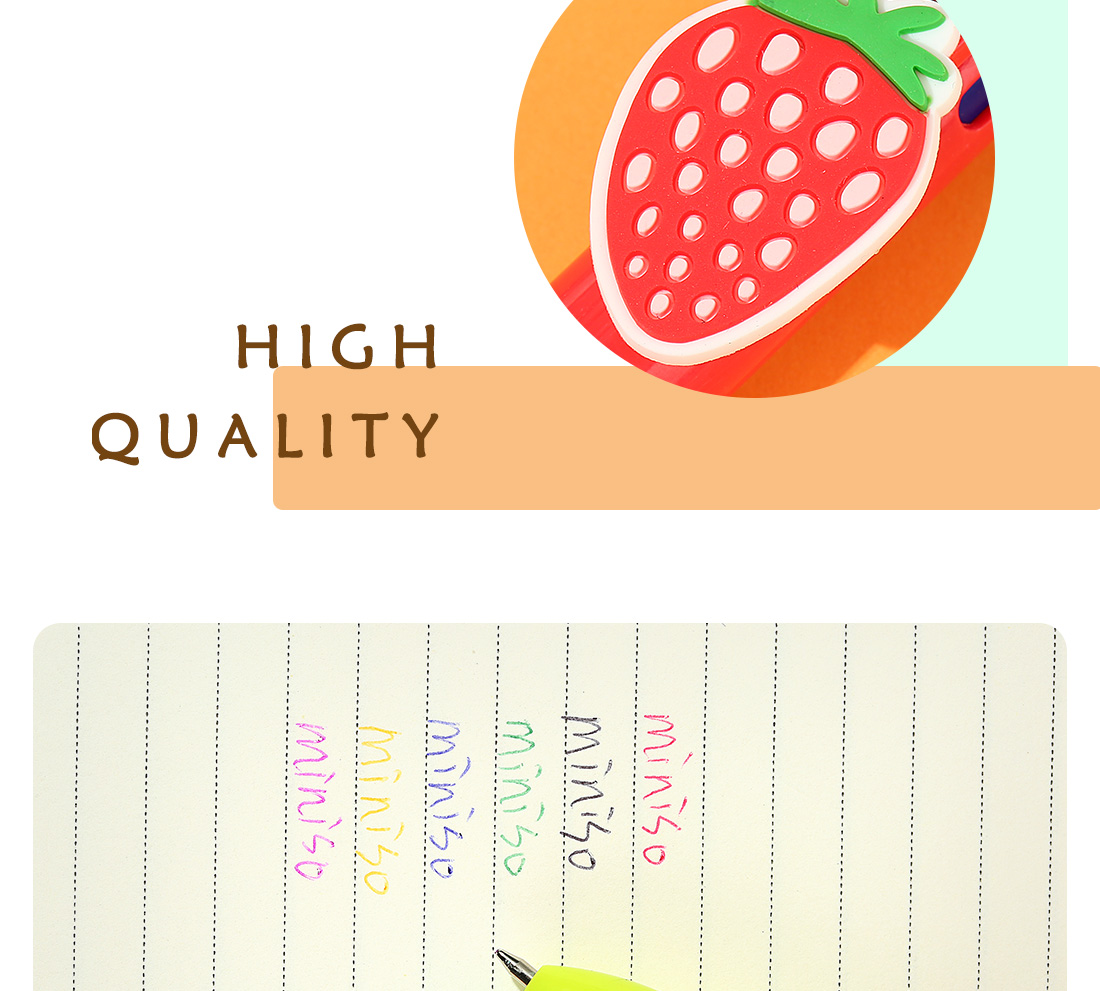 HIGH
QUALITY
miniso
miniso
miniso
miniso
miniso
miniso